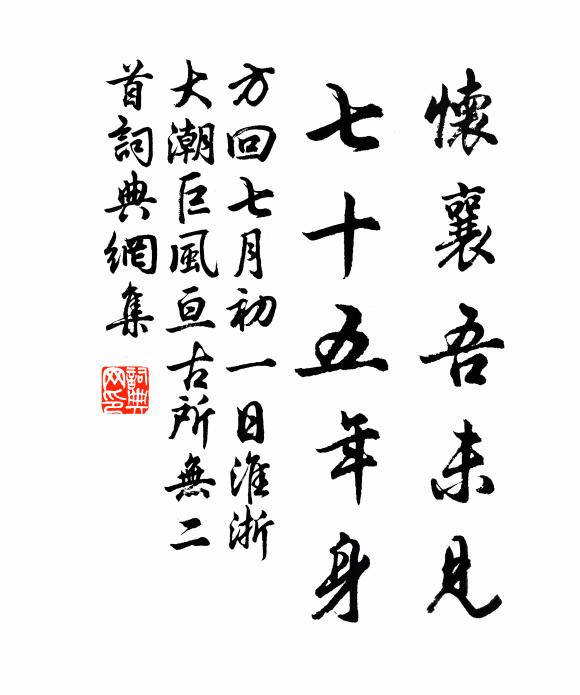 懷襄吾未見
七十五年身
方回七月初一日淮浙
大潮巨風亘古所無二
首詞典網集
詞典
网印